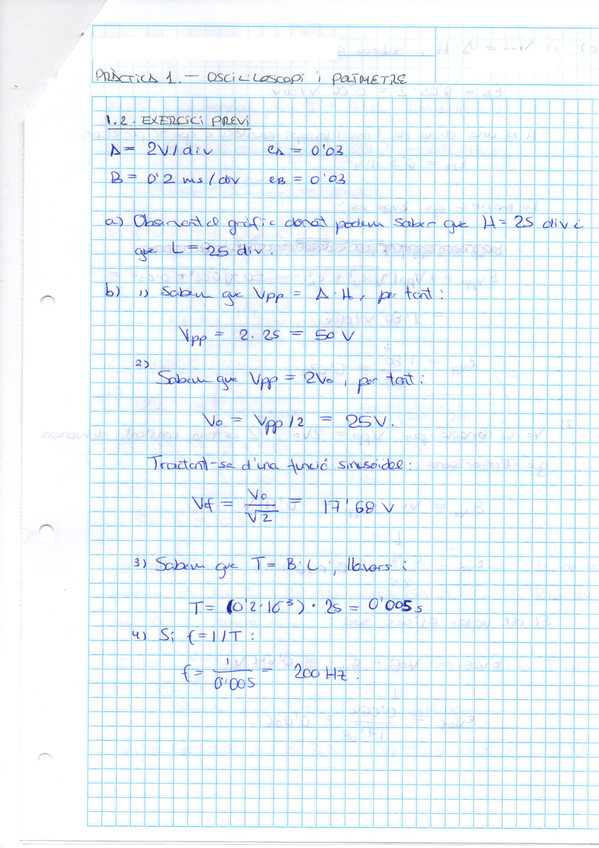 PRÀCTICA 1.- OSCIL·LOSCOPI i POLÍMETRE
1.2. EXERCICI PREVI
A = 2V/div eA = 0'03
B = 0'2 ms/div eB = 0'03
a) Observant el gràfic donat podem saber que H = 25 div i
que L = 25 div.
b) 1) Sabem que Vpp = A·H, per tant:
Vpp = 2·25 = 50 V
2) Sabem que Vpp = 2Vo, per tant:
Vo = Vpp/2 = 25V.
Tractant-se d'una funció sinusoidal:
Vef = Vo/√2 = 17'68 V
3) Sabem que T = B·L, llavors:
T = (0'2·10⁻³)·25 = 0'005 s
4) Si f = 1/T:
f = 1/0'005 = 200 Hz.